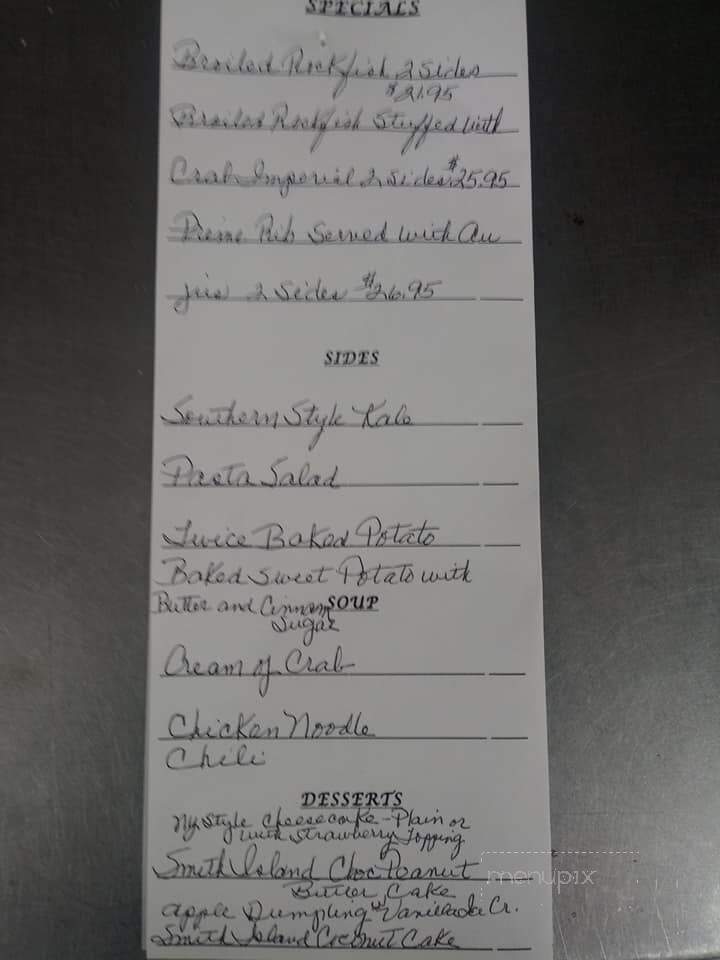 SPECIALS
Broiled Rockfish 2 Sides
$21.95
Broiled Rockfish Stuffed with
Crab Imperial 2 Sides $25.95
Prime Rib Served with Au
jus 2 Sides $26.95
SIDES
Southern Style Kale
Pasta Salad
Twice Baked Potato
Baked Sweet Potato with
Butter and Cinnam
SOUP
Sugar
Cream of Crab
Chicken Noodle
Chili
DESSERTS
NY Style Cheesecake - Plain or
with Strawberry Topping
Smith Island Choc Peanut
Butter Cake
Apple Dumpling w/ Vanilla Ice Cr.
Smith Island Coconut Cake
menupix